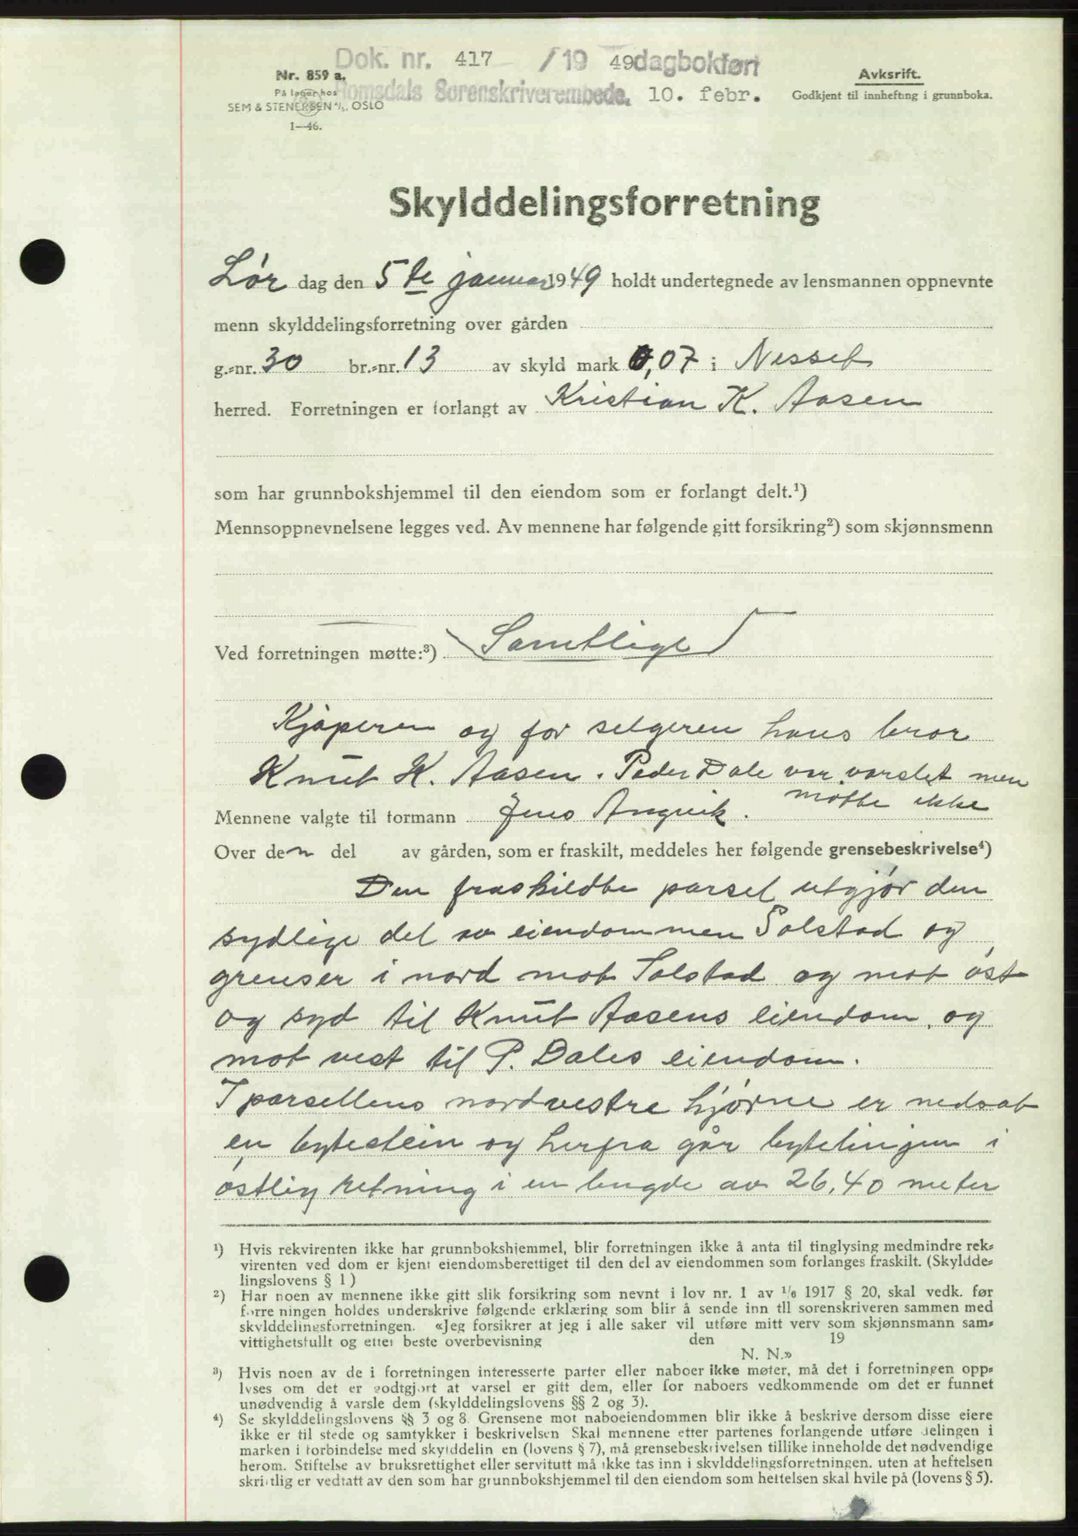 Dok. nr. 417 /19 49 dagbokført
Romsdals Sorenskriverembede. 10. febr.
Nr. 859 a.
På lager hos
SEM & STENERSEN A/S, OSLO
1—46.
Avkskrift.
Godkjent til innhefting i grunnboka.
Skylddelingsforretning
Lør dag den 5te januar 1949 holdt undertegnede av lensmannen oppnevnte
menn skylddelingsforretning over gården
g.-nr. 30 br.-nr. 13 av skyld mark 0,07 i Nesset
herred. Forretningen er forlangt av Kristian K. Aasen
som har grunnbokshjemmel til den eiendom som er forlangt delt.¹)
Mennsoppnevnelsene legges ved. Av mennene har følgende gitt forsikring²) som skjønnsmenn
Samtlige
Ved forretningen møtte:³)
Kjøperen og for selgeren hans bror
Knut K. Aasen. Peder Dale var varslet men
møtte ikke
Mennene valgte til formann Jens Angvik.
Over den del av gården, som er fraskilt, meddeles her følgende grensebeskrivelse⁴)
Den fraskildte parsel utgjør den
sydlige del av eiendommen Solstad og
grenser i nord mot Solstad og mot øst
og syd til Knut Aasens eiendom, og
mot vest til P. Dales eiendom.
I parsellens nordvestre hjørne er nedsat
en bytestein og herfra går bytelinjen i
østlig retning i en lengde av 26,40 meter
¹) Hvis rekvirenten ikke har grunnbokshjemmel, blir forretningen ikke å anta til tinglysing medmindre rek-
virenten ved dom er kjent eiendomsberettiget til den del av eiendommen som forlanges fraskilt. (Skyldde-
lingslovens § 1)
²) Har noen av mennene ikke gitt slik forsikring som nevnt i lov nr. 1 av 1/6 1917 § 20, skal vedk. før
forretningen holdes underskrive følgende erklæring som blir å sende inn til sorenskriveren sammen med
skylddelingsforretningen. «Jeg forsikrer at jeg i alle saker vil utføre mitt verv som skjønnsmann sam-
vittighetsfullt og etter beste overbevisning den 19
N. N.»
³) Hvis noen av de i forretningen interesserte parter eller naboer ikke møter, må det i forretningen opp-
lyses om det er godtgjort at varsel er gitt dem, eller for naboers vedkommende om det er funnet
unødvendig å varsle dem (skylddelingslovens §§ 2 og 3).
⁴) Se skylddelingslovens §§ 3 og 8. Grensene mot naboeiendommen blir ikke å beskrive dersom disse eiere
ikke er til stede og samtykker i beskrivelsen Skal mennene etter partenes forlangende utføre delingen i
marken i forbindelse med skylddelingen (lovens § 7), må grensebeskrivelsen tillike inneholde det nødvendige
herom. Stiftelse av bruksrettighet eller servitutt må ikke tas inn i skylddelingsforretningen, uten at heftelsen
skriftlig er vedtatt av den som har grunnbokshjemmel til den eiendom som heftelsen skal hvile på (lovens § 5).